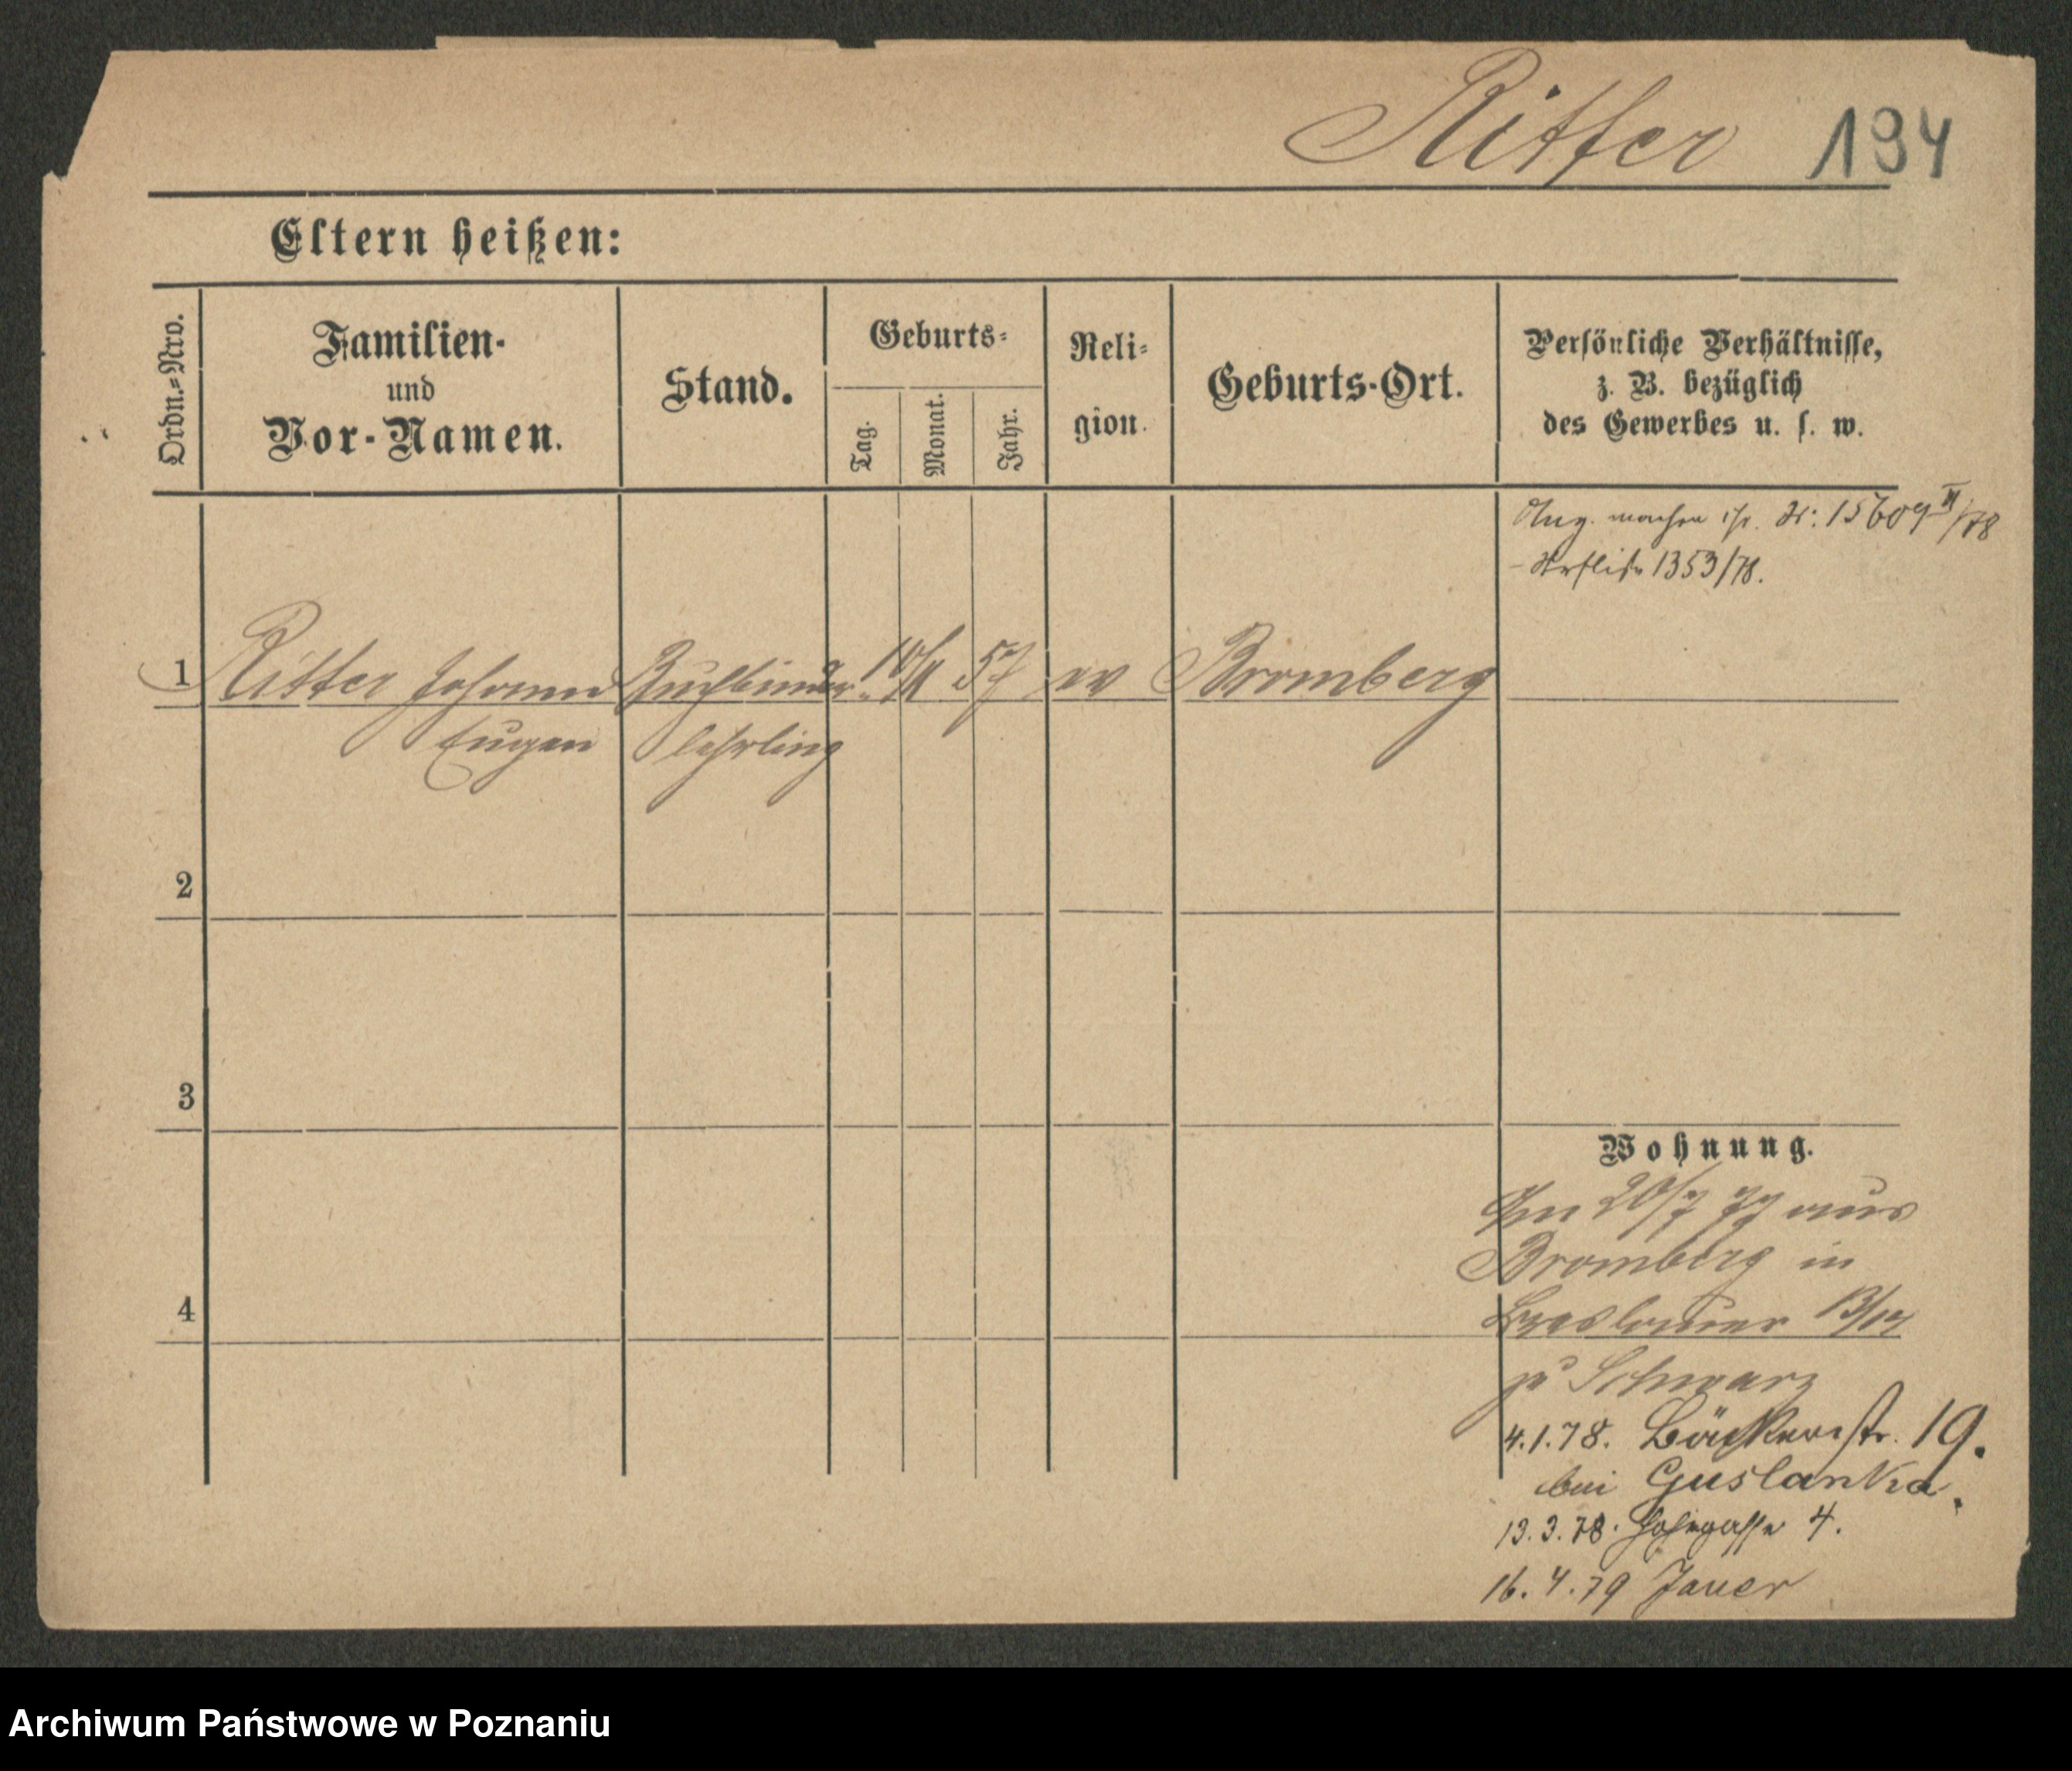 Ritter 194
Eltern heißen:
Ordn.=Nro.
Familien-
und
Vor-Namen.
Stand.
Geburts=
Tag.
Monat.
Jahr.
Reli=
gion.
Geburts-Ort.
Persönliche Verhältnisse,
z. B. bezüglich
des Gewerbes u. s. w.
15609 II/78
1353/78.
1 Ritter Johann Buchbinder 57 ev Bromberg
Eugen lehrling
2
3
Wohnung.
20/7 77 aus
Bromberg in
4
Breslauer 13/14
zu Schwarz
4.1.78. Bäckerstr. 19.
bei Guslanka.
13.3.78. Hohegasse 4.
16.4.79 Jauer
Archiwum Państwowe w Poznaniu